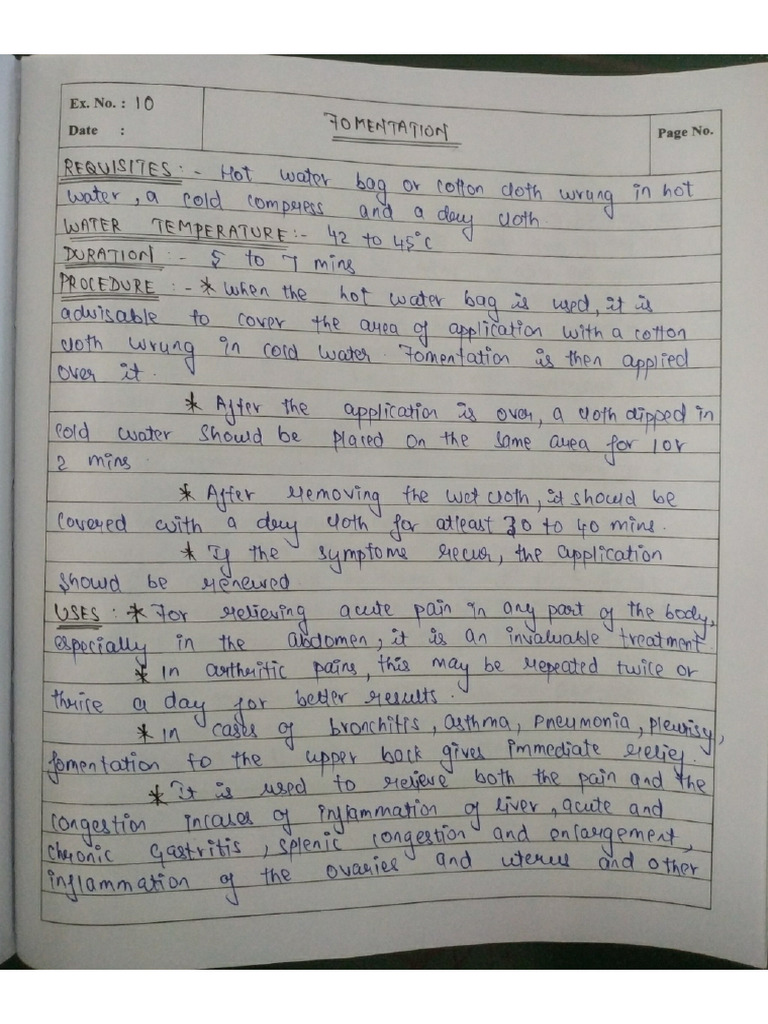 Ex. No. : 10
Date :
FOMENTATION
Page No.
REQUISITES:- Hot water bag or cotton cloth wrung in hot
water, a cold compress and a dry cloth.
WATER TEMPERATURE:- 42 to 45°C
DURATION:- 5 to 7 mins
PROCEDURE:- * When the hot water bag is used, it is
advisable to cover the area of application with a cotton
cloth wrung in cold water. Fomentation is then applied
over it.
* After the application is over, a cloth dipped in
cold water should be placed on the same area for 1 or
2 mins.
* After removing the wet cloth, it should be
covered with a dry cloth for atleast 30 to 40 mins.
* If the symptoms recur, the application
should be renewed
USES: * For relieving acute pain in any part of the body,
especially in the abdomen, it is an invaluable treatment.
* In arthritic pains, this may be repeated twice or
thrice a day for better results.
* In cases of bronchitis, asthma, pneumonia, pleurisy,
fomentation to the upper back gives immediate relief.
* It is used to relieve both the pain and the
congestion incases of inflammation of liver, acute and
chronic gastritis, splenic congestion and enlargement,
inflammation of the ovaries and uterus and other